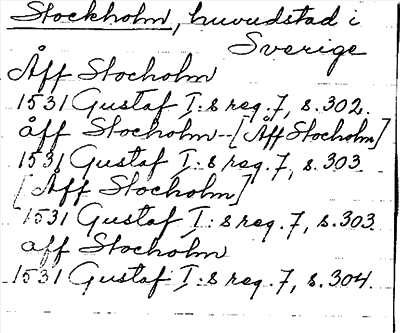 Stockholm, huvudstad i
Sverige
Åff Stocholm
1531 Gustaf I:s reg. 7, s. 302.
åff Stocholm--[Åff Stocholm]
1531 Gustaf I:s reg. 7, s. 303
[Åff Stocholm]
1531 Gustaf I:s reg. 7, s. 303
aff Stocholm
1531 Gustaf I:s reg. 7, s. 304.